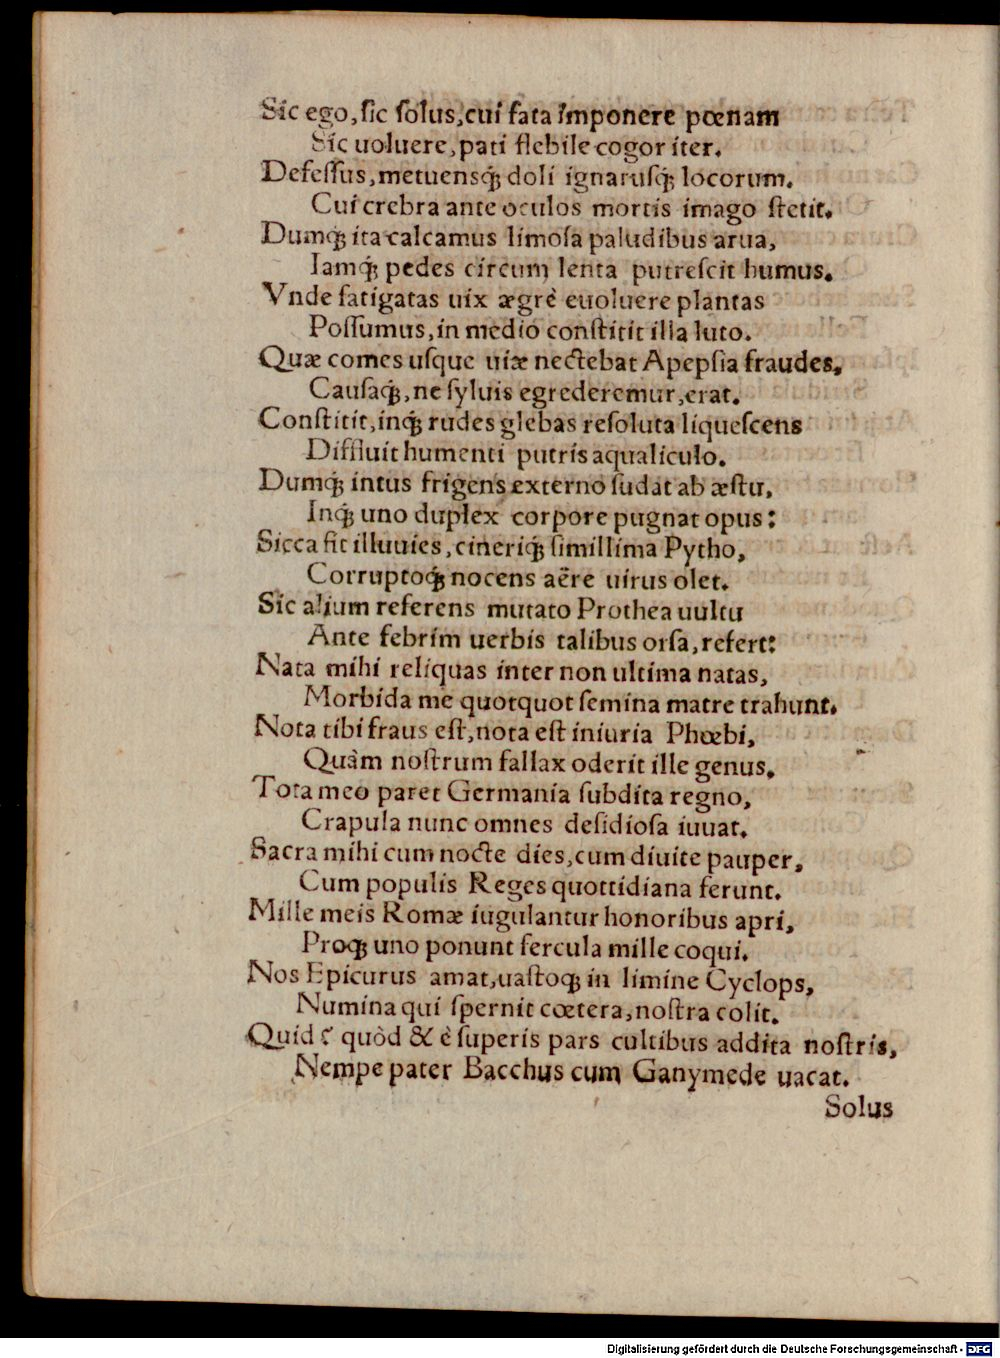 Sic ego, sic solus, cui fata imponere pœnam
Sic uoluere, pati flebile cogor iter.
Defessus, metuensq́ꝫ doli ignarusq́ꝫ locorum.
Cui crebra ante oculos mortis imago stetit.
Dumq́ꝫ ita calcamus limosa paludibus arua,
Iamq́ꝫ pedes circum lenta putrescit humus.
Vnde fatigatas uix ægrè euoluere plantas
Possumus, in medio constitit illa luto.
Quæ comes usque uiæ nectebat Apepsia fraudes,
Causaq́ꝫ, ne syluis egrederemur, erat.
Constitit, inq́ꝫ rudes glebas resoluta liquescens
Diffluit humenti putris aqualiculo.
Dumq́ꝫ intus frigens externo sudat ab æstu,
Inq́ꝫ uno duplex corpore pugnat opus:
Sicca fit illuuies, cineriq́ꝫ simillima Pytho,
Corruptoq́ꝫ nocens aëre uirus olet.
Sic alium referens mutato Prothea uultu
Ante febrim uerbis talibus orsa, refert:
Nata mihi reliquas inter non ultima natas,
Morbida me quotquot semina matre trahunt.
Nota tibi fraus est, nota est iniuria Phœbi,
Quàm nostrum fallax oderit ille genus.
Tota meo paret Germania subdita regno,
Crapula nunc omnes desidiosa iuuat.
Sacra mihi cum nocte dies, cum diuite pauper,
Cum populis Reges quottidiana ferunt.
Mille meis Romæ iugulantur honoribus apri,
Proqꝫ uno ponunt fercula mille coqui.
Nos Epicurus amat, uastoqꝫ in limine Cyclops,
Numina qui spernit cœtera, nostra colit.
Quid? quòd & è superis pars cultibus addita nostris,
Nempe pater Bacchus cum Ganymede uacat.
Solus
Digitalisierung gefördert durch die Deutsche Forschungsgemeinschaft - DFG